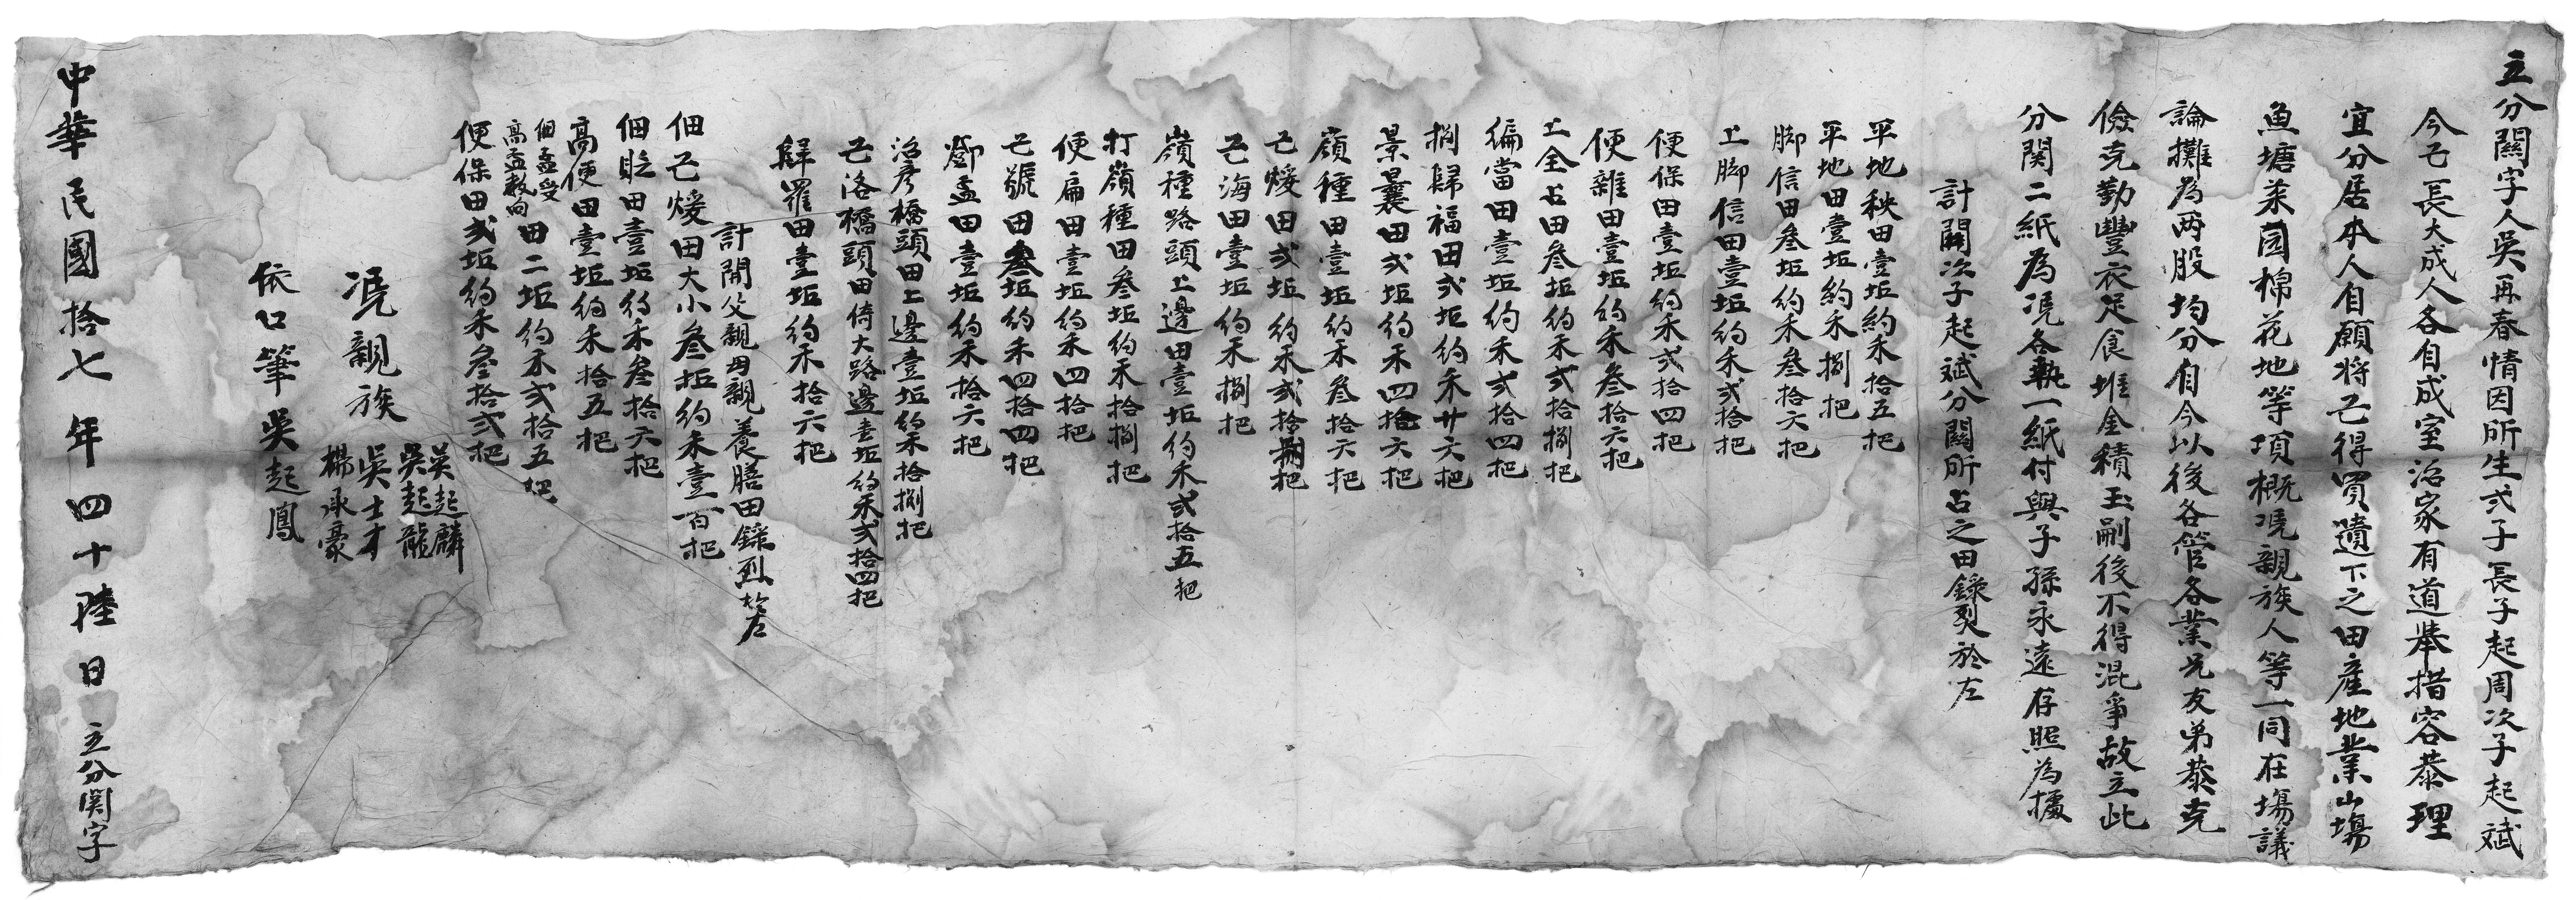 立分關字人吳再春情因所生弍子長子起周次子起斌
今已長大成人各自成室治家有道舉措容恭理
宜分居本人自願將已得買遺下之田產地業山塲
魚塘菜园棉花地等項概凴親族人等一同在塲議
論攤為两股均分自今以後各管各業兄友弟恭克
儉克勤豐衣足食堆金積玉嗣後不得混爭故立此
分関二紙為凴各執一紙付與子孫永遠存照為據
計開次子起斌分關所占之田錄烈於左
平地秧田壹坵約禾拾五把
平地田壹坵約禾捌把
脚信田叁坵約禾叁拾六把
上脚信田壹坵約禾弍拾把
便保田壹坵約禾弍拾四把
便雜田壹坵約禾叁拾六把
上全占田叁坵約禾弍拾捌把
編當田壹坵約禾弍拾四把
捌歸福田弍坵約禾廿六把
景曩田弍坵約禾四拾六把
嶺種田壹坵約禾叁拾六把
已煖田弍坵約禾弍拾捌把
已海田壹坵約禾捌把
嶺種路頭上邊田壹坵約禾弍拾五把
打嶺種田叁坵約禾拾捌把
便扁田壹坵約禾四拾把
已號田叁坵約禾四拾四把
鄧孟田壹坵約禾拾六把
治彥橋頭田上邊壹坵約禾拾捌把
已洛橋頭田倚大路邊壹坵約禾弍拾四把
歸羅田壹坵約禾拾六把
計開父親母親養膳田錄烈於左
佃已煖田大小叁坵約禾壹百把
佃貶田壹坵約禾叁拾六把
高便田壹坵約禾拾五把
佃孟受
高孟教向田二坵約禾弍拾五把
便保田弍坵約禾叁拾弍把
凴親族
吳起麟
吳起龍
吳士才
楊永豪
依口筆吳起鳳
中華民國拾七年四十陸日立分関字